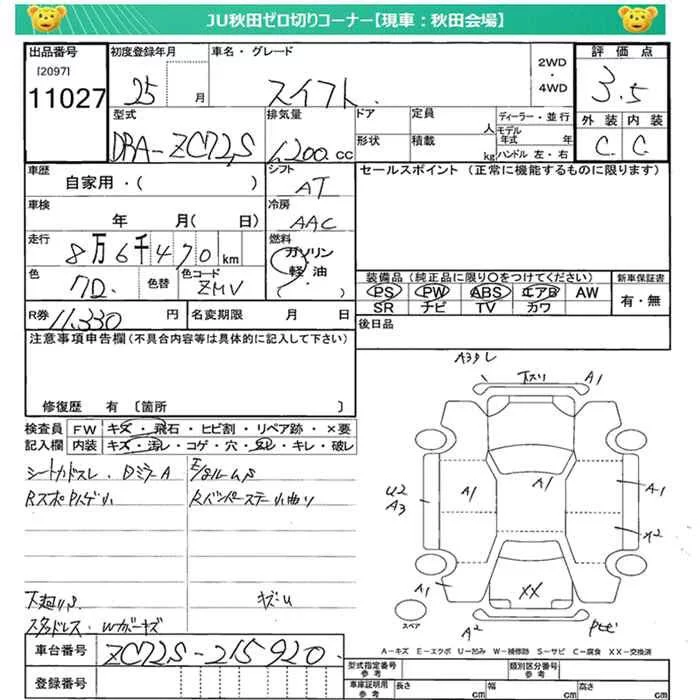 JU秋田ゼロ切りコーナー【現車：秋田会場】
出品番号 初度登録年月 車名・グレード 2WD・4WD 評価点
[2097]
11027 25 月 スイフト 3.5
外装 内装
C C
型式 排気量 ドア 定員 人 ディーラー・並行
DBA-ZC72S 1,200 cc 形状 積載 kg モデル年式 年
ハンドル 左・右
車歴 シフト セールスポイント (正常に機能するものに限ります)
自家用・( ) AT
車検 冷房
年 月( 日) AAC
走行 燃料
8万6千470km ガソリン
軽・油
( )
色 色替 色コード 装備品 (純正品に限り○をつけてください) 新車保証書
ZMV PS PW ABS エアB AW 有・無
SR ナビ TV カワ
R券 11,330 円 名変期限 月 日 後日品
注意事項申告欄(不具合内容等は具体的に記入して下さい)
修復歴 有 〔箇所 〕
検査員記入欄 FW キズ・飛石・ヒビ割・リペア跡・×要
内装 キズ・汚レ・コゲ・穴・・キレ・破レ
A1
U2
A3
A1
A1
A1
X2
A1
XX
A2
スペア
A-キズ E-エクボ U-凹み W-補修跡 S-サビ C-腐食 XX-交換済
車台番号 ZC72S-215920
登録番号
型式指定番号 参考 類別区分番号 参考
車庫証明用 参考 長さ cm 幅 cm 高さ cm